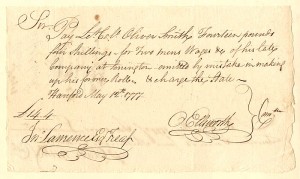 Sir
Pay Lt Col Oliver Smith Fourteen pounds
four Shillings – for Two mens Wages &c of his late
Company at Stonington omitted by mistake in making
up his former Rolls & charge the State –
Hartford May 12th 1777
£14.4
Jn Lawrence Esq Treasr
O Ellsworth